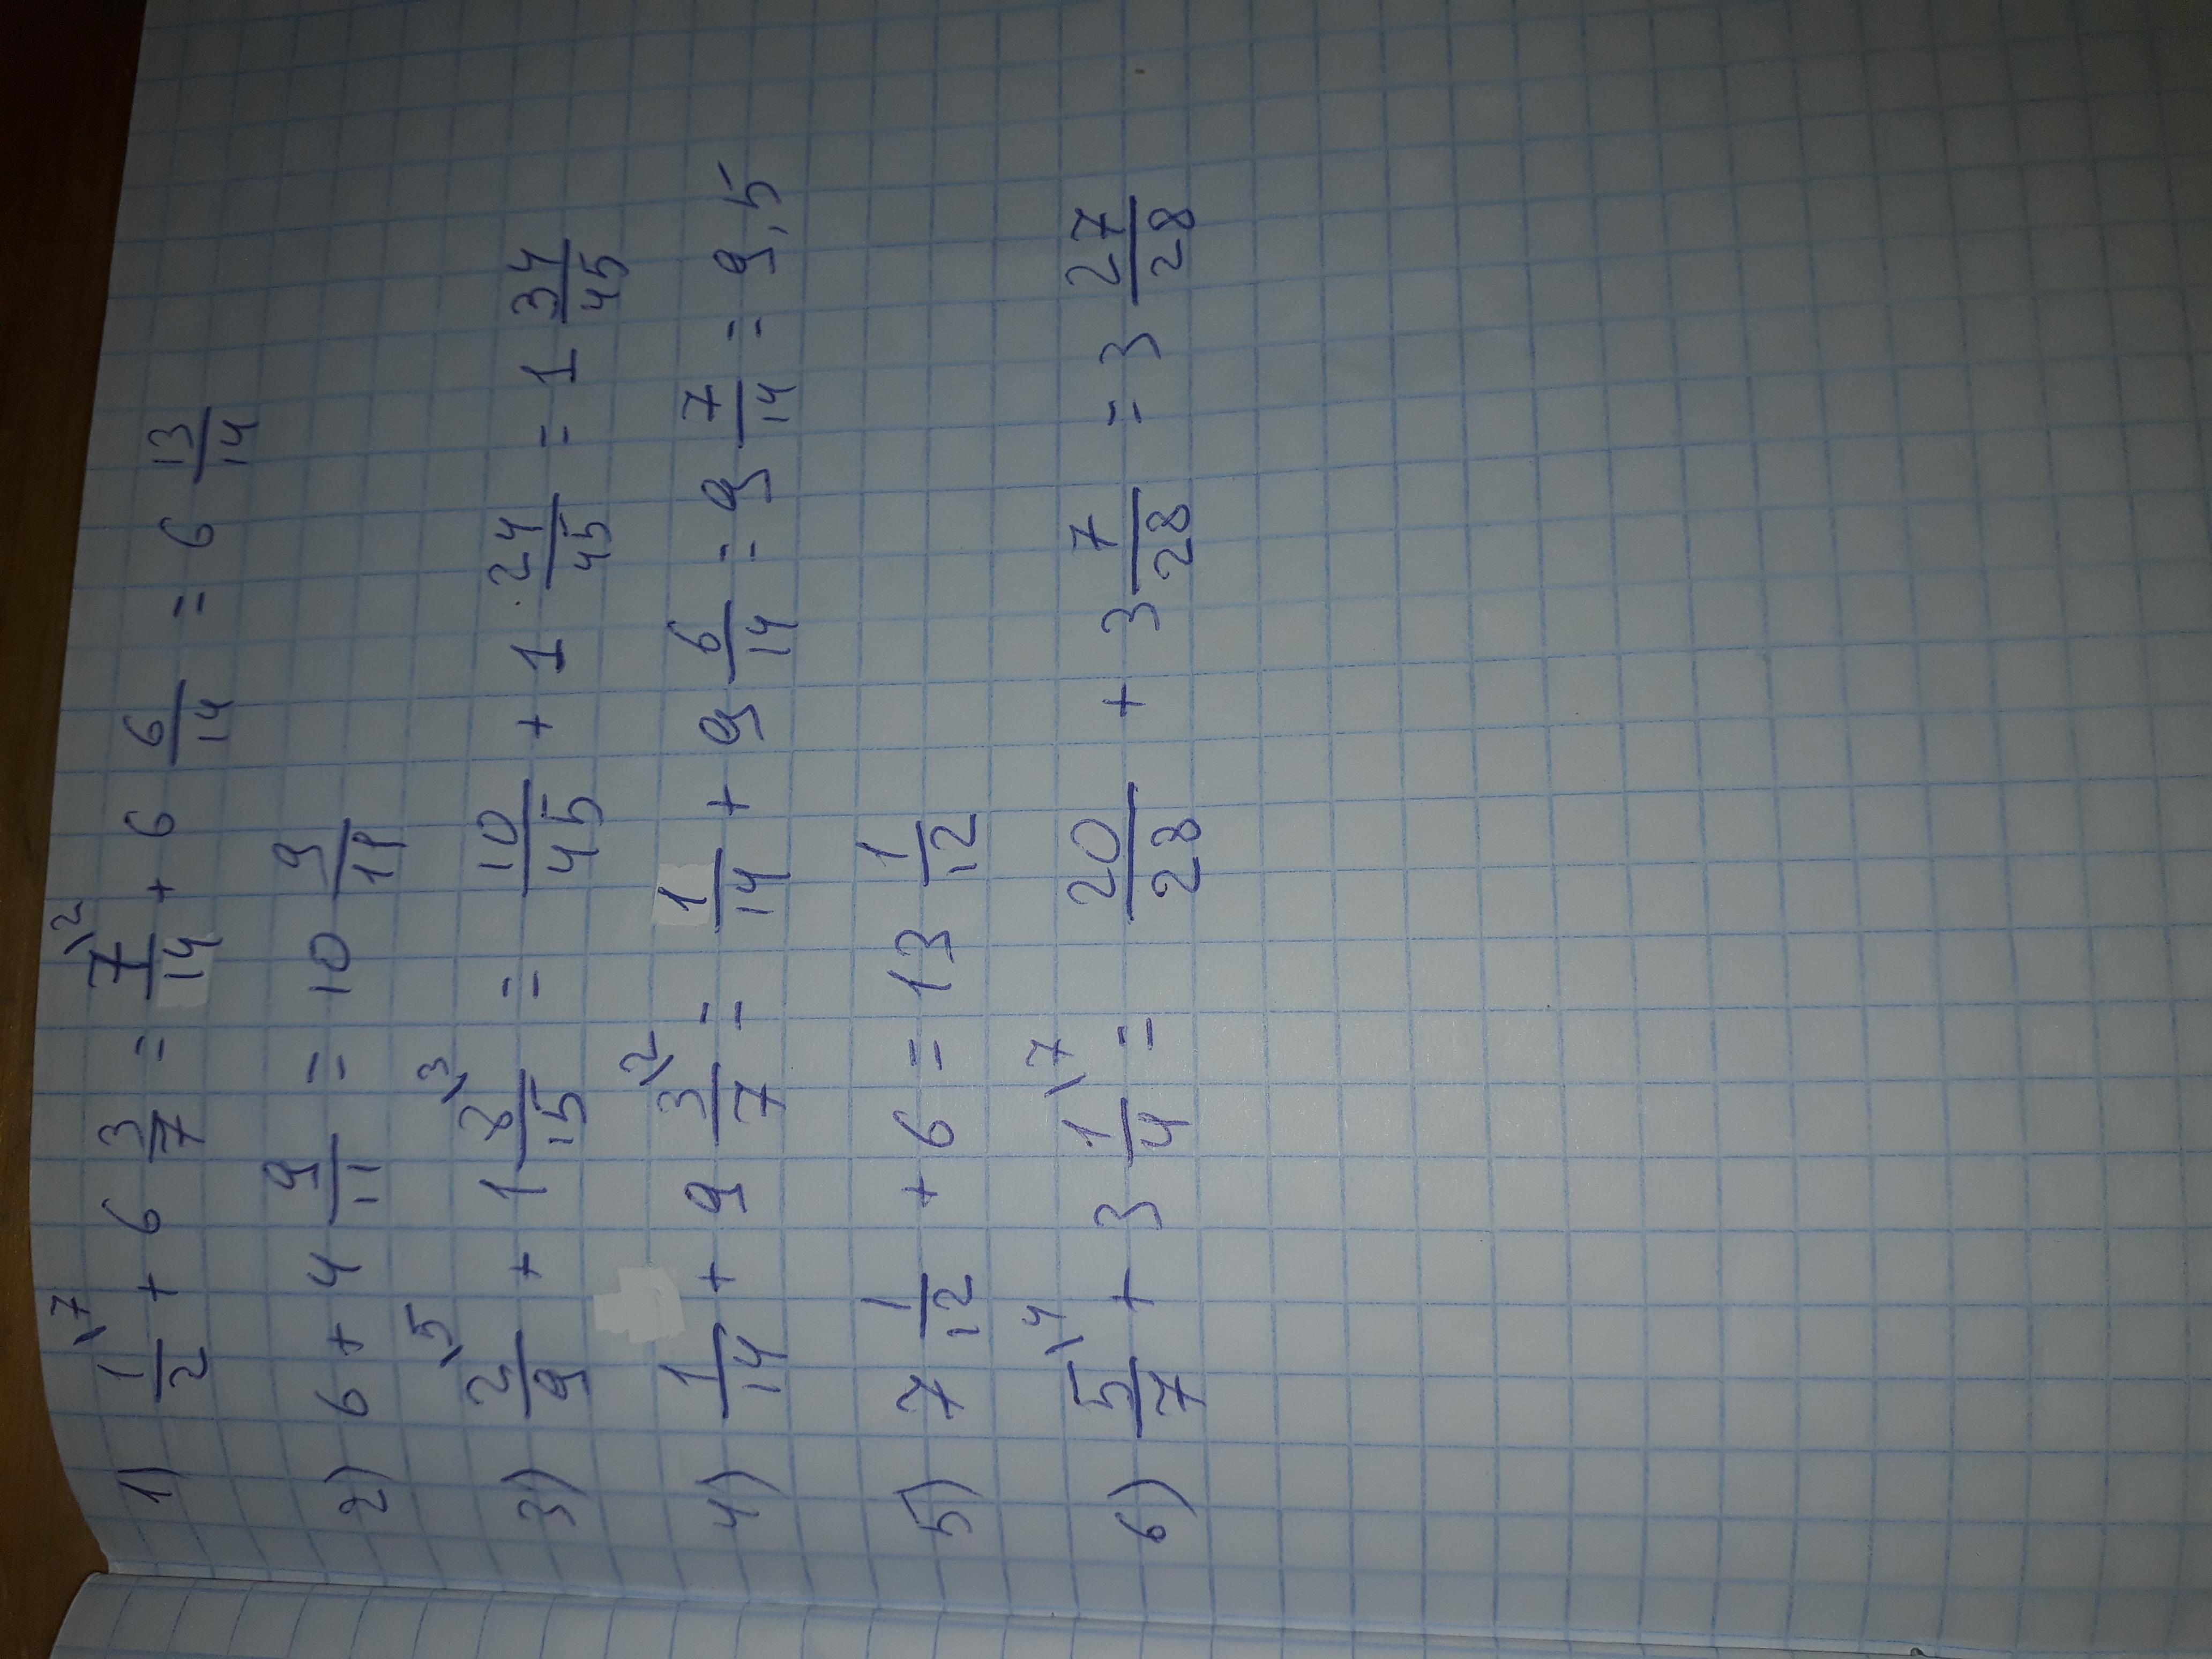 1) 1/2 \7 + 6 3/7 = 7/14 \2 + 6 6/14 = 6 13/14
2) 6 + 4 9/11 = 10 9/11
3) 2/9 \5 + 1 8/15 \3 = 10/45 + 1 24/45 = 1 34/45
4) 1/14 + 9 3/7 \2 = 1/14 + 9 6/14 = 9 7/14 = 9,5
5) 7 1/12 + 6 = 13 1/12
6) 5/7 \4 + 3 1/4 \7 = 20/28 + 3 7/28 = 3 27/28